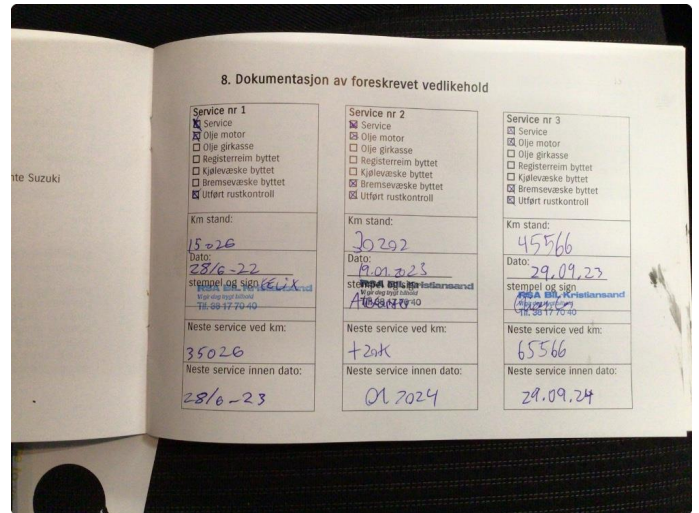 nte Suzuki
8. Dokumentasjon av foreskrevet vedlikehold
Service nr 1
Service
Olje motor
Olje girkasse
Registerreim byttet
Kjølevæske byttet
Bremsevæske byttet
Utført rustkontroll
Km stand:
15026
Dato:
28/6-22
stempel og sign FELIX
RSA BIL Kristiansand
Vi gir deg trygt bilhold
Tlf. 38 17 70 40
Neste service ved km:
35026
Neste service innen dato:
28/6-23
Service nr 2
Service
Olje motor
Olje girkasse
Registerreim byttet
Kjølevæske byttet
Bremsevæske byttet
Utført rustkontroll
Km stand:
30292
Dato:
19.01.2023
stempel og sign
RSA BIL Kristiansand
Vi gir deg trygt bilhold
Tlf. 38 17 70 40
Neste service ved km:
+20K
Neste service innen dato:
01 2024
Service nr 3
Service
Olje motor
Olje girkasse
Registerreim byttet
Kjølevæske byttet
Bremsevæske byttet
Utført rustkontroll
Km stand:
45566
Dato:
29.09.23
stempel og sign
RSA BIL Kristiansand
Tlf. 38 17 70 40
Neste service ved km:
65566
Neste service innen dato:
29.09.24